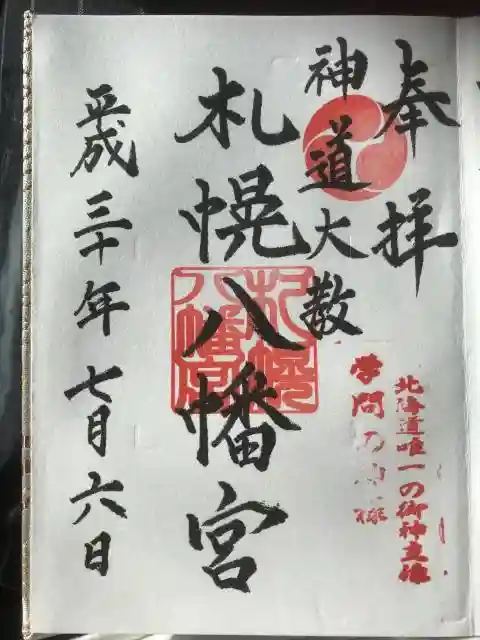 奉拝
神道大教
北海道唯一の御神主神
学問の神様
札幌八幡宮
札幌八幡宮
平成三十年七月六日